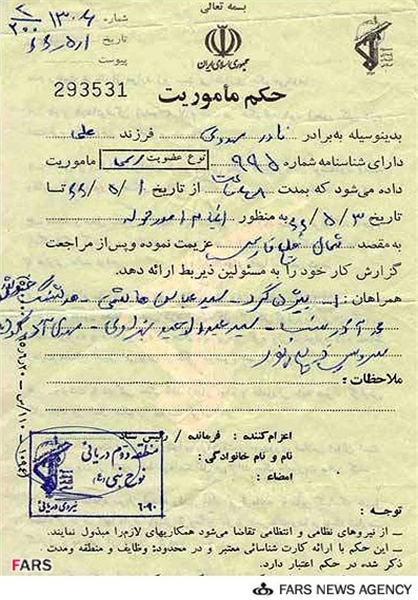 بسمه تعالی
شماره ۱۳۰۶
۲/۲۰۰
تاریخ ۶۶/۵/۱
پیوست
جمهوری اسلامی ایران
293531
حکم مأموریت
بدینوسیله به برادر نادر مهدوی فرزند علی
دارای شناسنامه شماره ۹۹۵ نوع عضویت رسمی ماموریت
داده می‌شود که بمدت از تاریخ ۶۶/۵/۱ تا
تاریخ ۶۶/۵/۳ به منظور انجام امور محوله
به مقصد شمال خلیج فارس عزیمت نموده و پس از مراجعت
گزارش کار خود را به مسئولین ذیربط ارائه دهد.
همراهان: ۱- بیژن گرد - سید عباس هاشمی -
ملاحظات:
اعزام‌کننده: فرمانده / رئیس ستاد
نام و نام خانوادگی:
امضاء:
منطقه دوم دریائی
نوح نبی (ع)
نیروی دریائی ۶۰۹۰
توجه:
- از نیروهای نظامی و انتظامی تقاضا می‌شود همکاریهای لازم را مبذول نمایند.
- این حکم با ارائه کارت شناسائی معتبر و در محدوده: وظایف و منطقه ومدت
ذکر شده در حکم اعتبار دارد.
FARS
FARS NEWS AGENCY